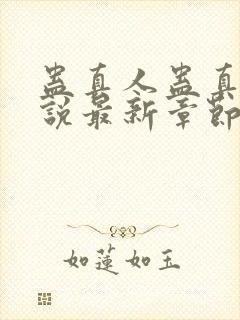 蛊真人蛊真
說最新章節
如蓮如玉